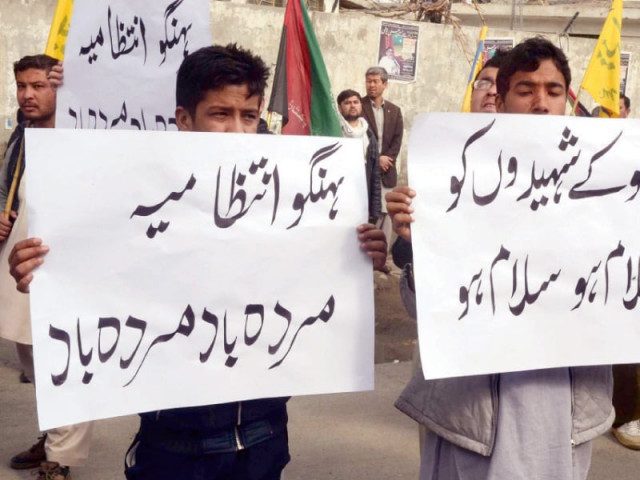 ہنگو انتظامیہ
مردہ باد
ہنگو انتظامیہ
مردہ باد مردہ باد
و کے شہیدوں کو
لام ہو سلام ہو